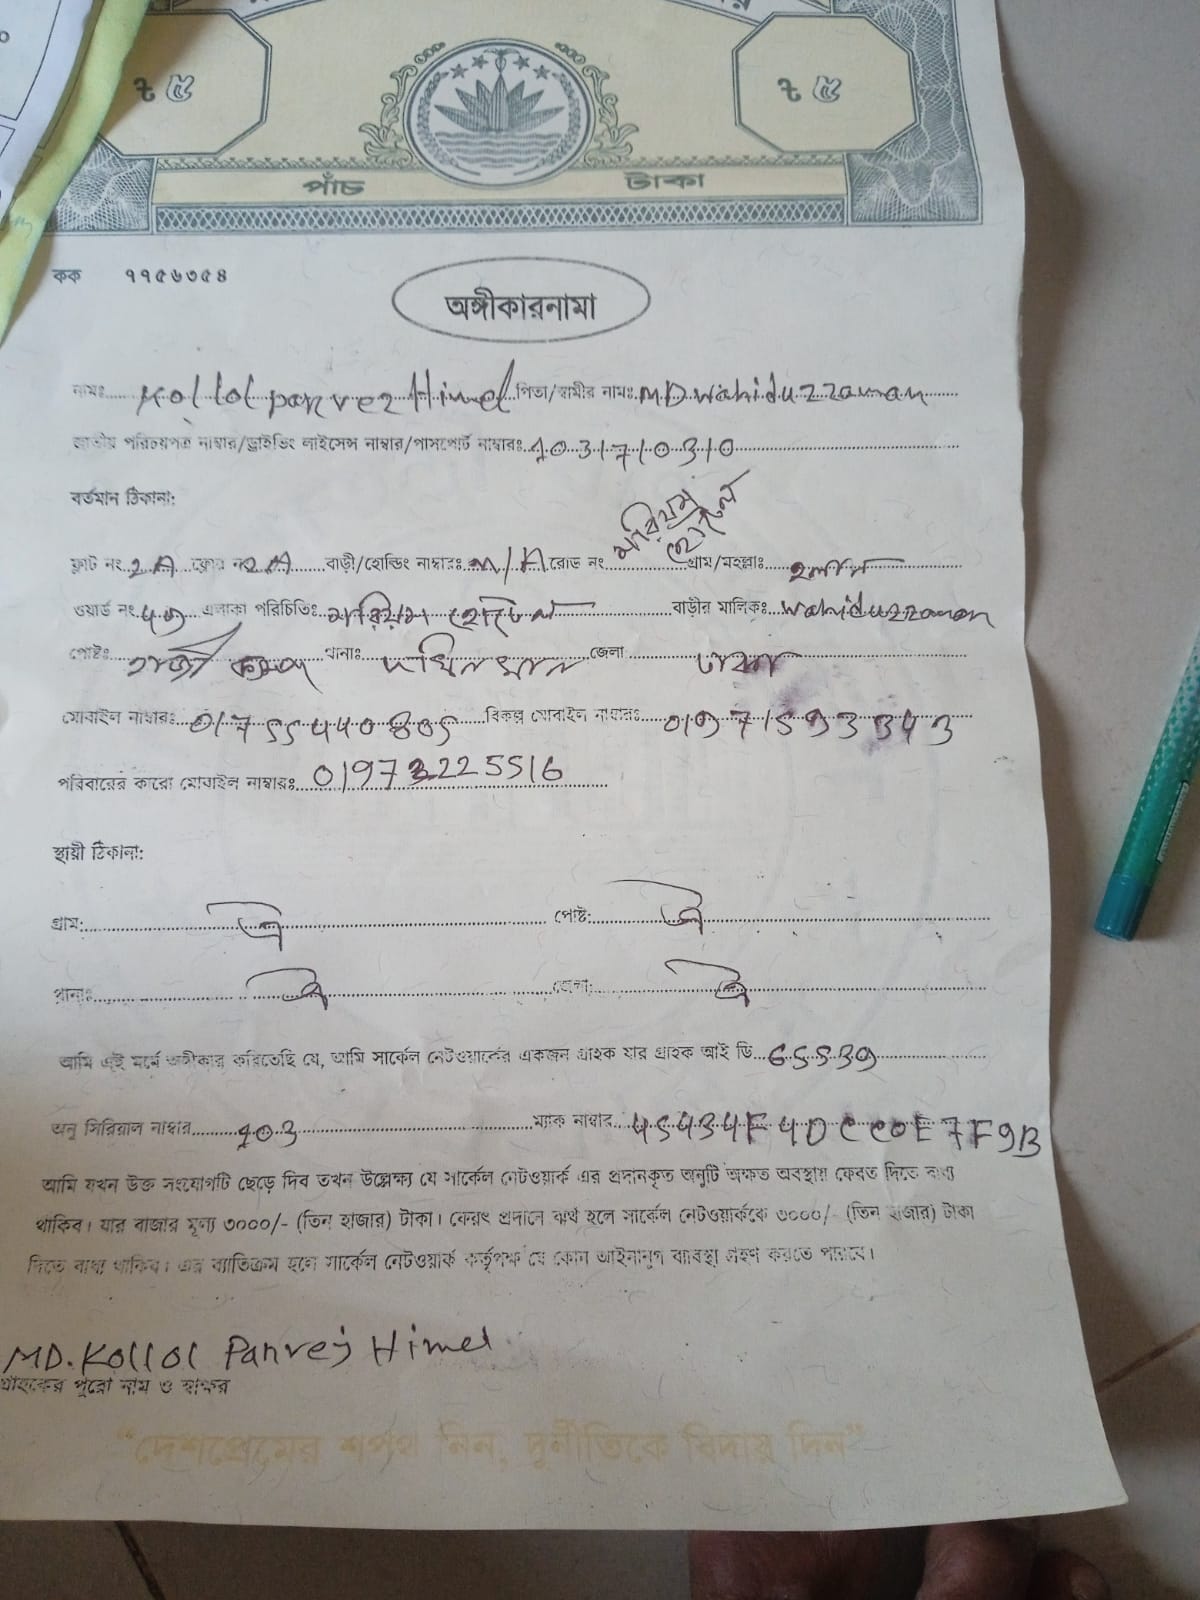 ৳ ৫ ৳ ৫
পাঁচ টাকা
কক ৭৭৫৬৩৫৪
অঙ্গীকারনামা
নামঃ Kollol parvez Himel পিতা/স্বামীর নামঃ MD Wahiduzzaman
জাতীয় পরিচয়পত্র নাম্বার/ড্রাইভিং লাইসেন্স নাম্বার/পাসপোর্ট নাম্বারঃ
বর্তমান ঠিকানা:
ফ্লাট নং 2A ফ্লোর নং 2A বাড়ী/হোল্ডিং নাম্বারঃ M/A রোড নং মরিয়ম হোটেল গ্রাম/মহল্লাঃ
ওয়ার্ড নং এলাকা পরিচিতিঃ মরিয়ম হোটেল বাড়ীর মালিকঃ Wahiduzzaman
পোষ্টঃ থানাঃ দখিনখান জেলা ঢাকা
মোবাইল নাম্বারঃ 01755440805 বিকল্প মোবাইল নাম্বারঃ 01971593343
পরিবারের কারো মোবাইল নাম্বারঃ
স্থায়ী ঠিকানা:
গ্রাম: ঐ পোষ্ট: ঐ
থানাঃ ঐ জেলা: ঐ
আমি এই মর্মে অঙ্গীকার করিতেছি যে, আমি সার্কেল নেটওয়ার্কের একজন গ্রাহক যার গ্রাহক আই ডি 65539
অনু সিরিয়াল নাম্বার 403 ম্যাক নাম্বার 45434F4DCC0E7F9B
আমি যখন উক্ত সংযোগটি ছেড়ে দিব তখন উল্লেক্ষ্য যে সার্কেল নেটওয়ার্ক এর প্রদানকৃত অনুটি অক্ষত অবস্থায় ফেরত দিতে বাধ্য
থাকিব। যার বাজার মূল্য ৩০০০/- (তিন হাজার) টাকা। ফেরৎ প্রদানে ব্যর্থ হলে সার্কেল নেটওয়ার্ককে ৩০০০/- (তিন হাজার) টাকা
দিতে বাধ্য থাকিব। এর ব্যাতিক্রম হলে সার্কেল নেটওয়ার্ক কর্তৃপক্ষ যে কোন আইনানুগ ব্যাবস্থা গ্রহণ করতে পারবে।
MD. Kollol Parvej Himel
গ্রাহকের পুরো নাম ও স্বাক্ষর
“দেশপ্রেমের শপথ নিন, দুর্নীতিকে বিদায় দিন”